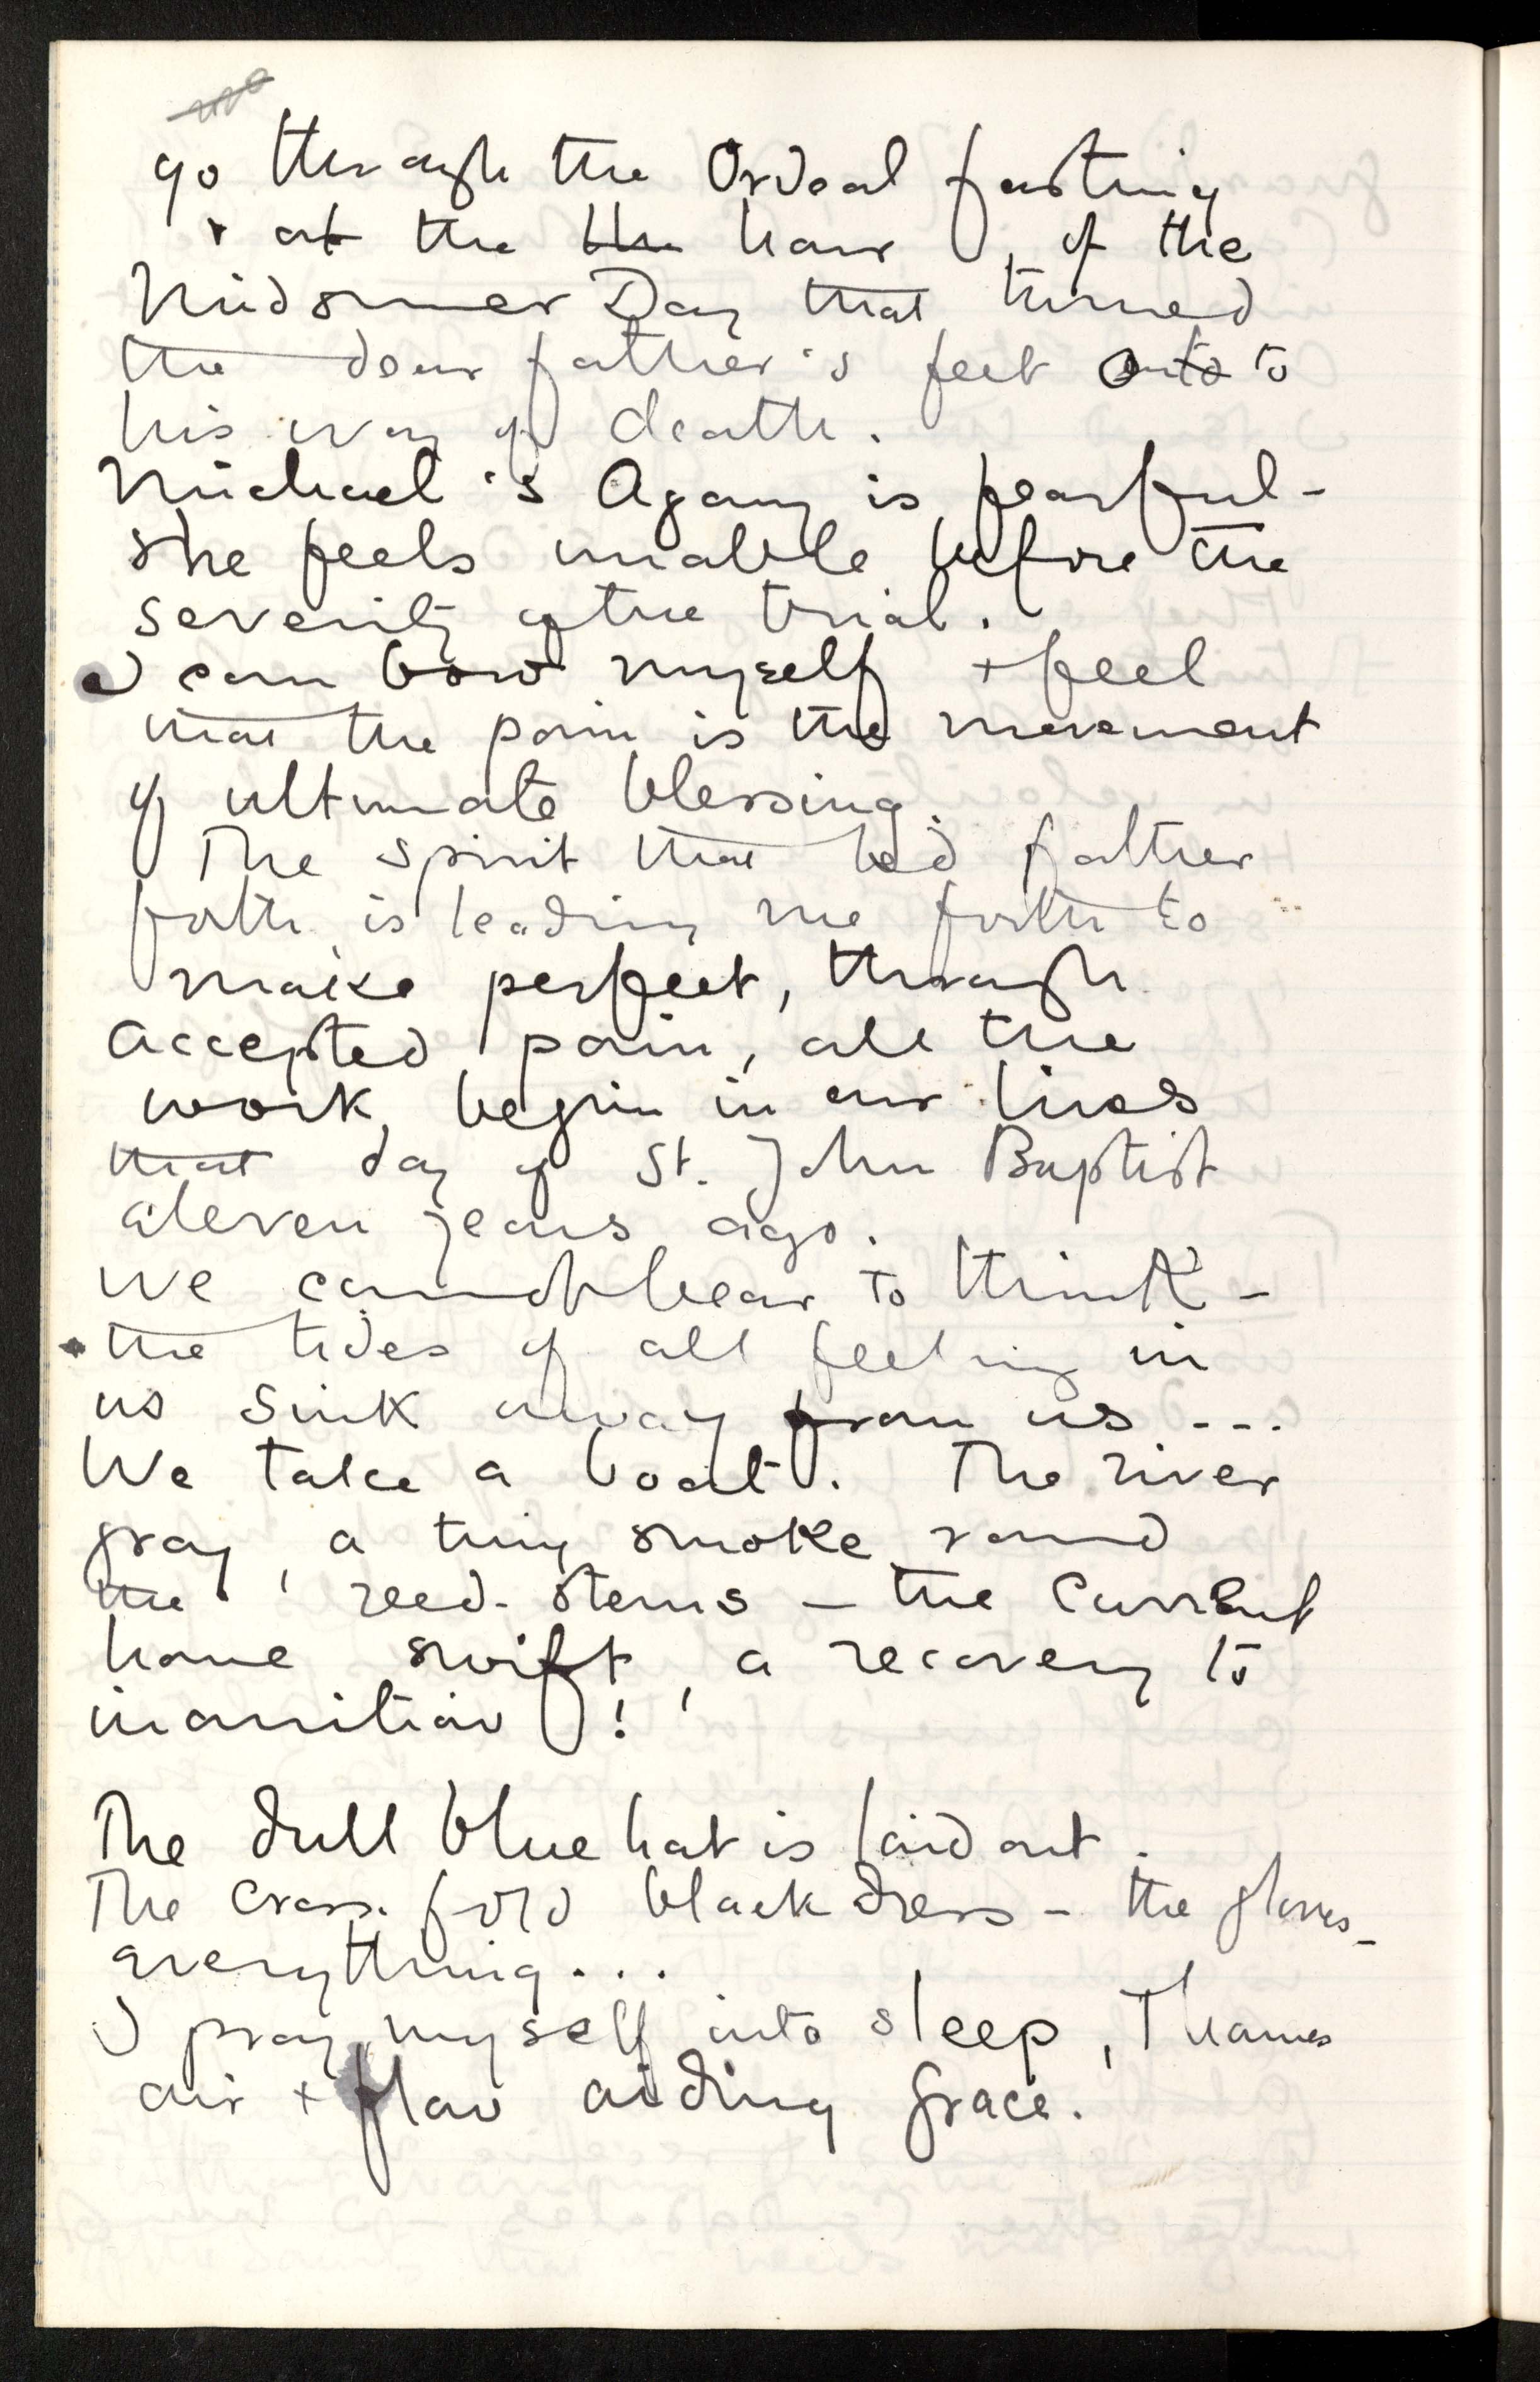 go through the Ordeal fasting
+ at the the hour of the
Midsummer Day that turned
the dear father's feet onto to
his way of death.
Michael's Agony is fearful -
she feels unable before the
severity of the trial.
I can bow myself + feel
that the pain is the movement
of ultimate blessing.
The spirit that led father
forth is leading me forth to
make perfect, through
accepted pain, all the
work begun in our lives
that day of St. John Baptist
eleven years ago.
We cannot bear to think -
the tides of all feeling in
us sink away from us ...
We take a boat. The river
gray, a tiny smoke round
the reed-stems - the current
home swift, a recovery to
inanition!
The dull blue hat is laid out.
The cross-fold black dress - the gloves -
everything...
I pray myself into sleep, Thames
air + flow aiding grace.